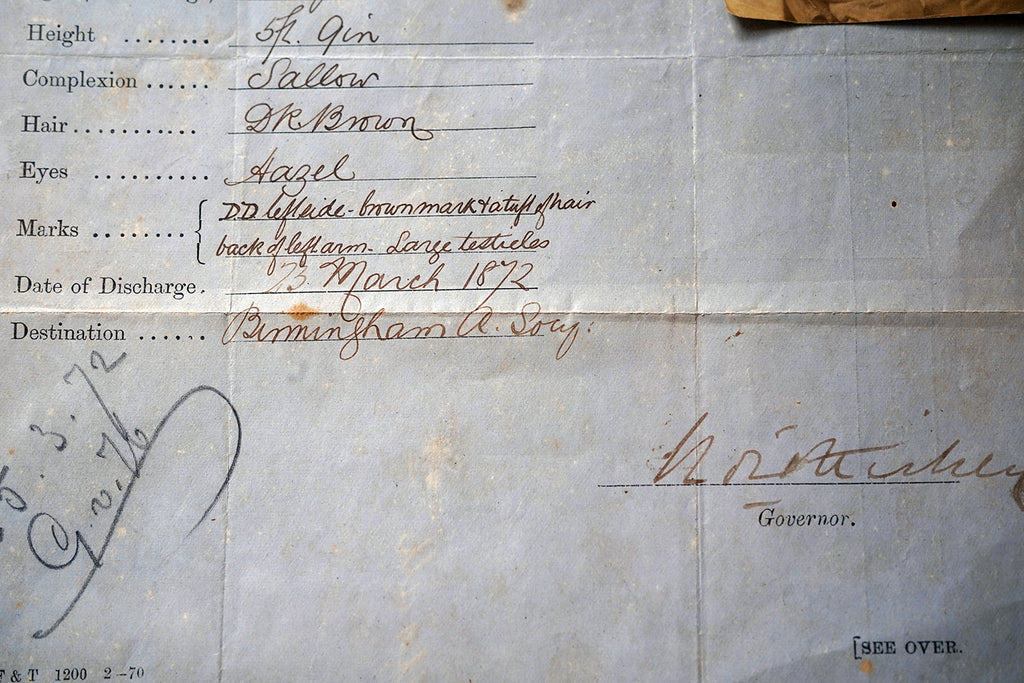 Height ........ 5ft. 9in
Complexion ...... Sallow
Hair........... Dk Brown
Eyes .......... Hazel
Marks ........ { D.D. left side - brown mark & a tuft of hair
back of left arm - Large testicles
Date of Discharge. March 1872
Destination ...... Birmingham A. Socy:
3.72
Governor.
[SEE OVER.
F & T 1200 2-70